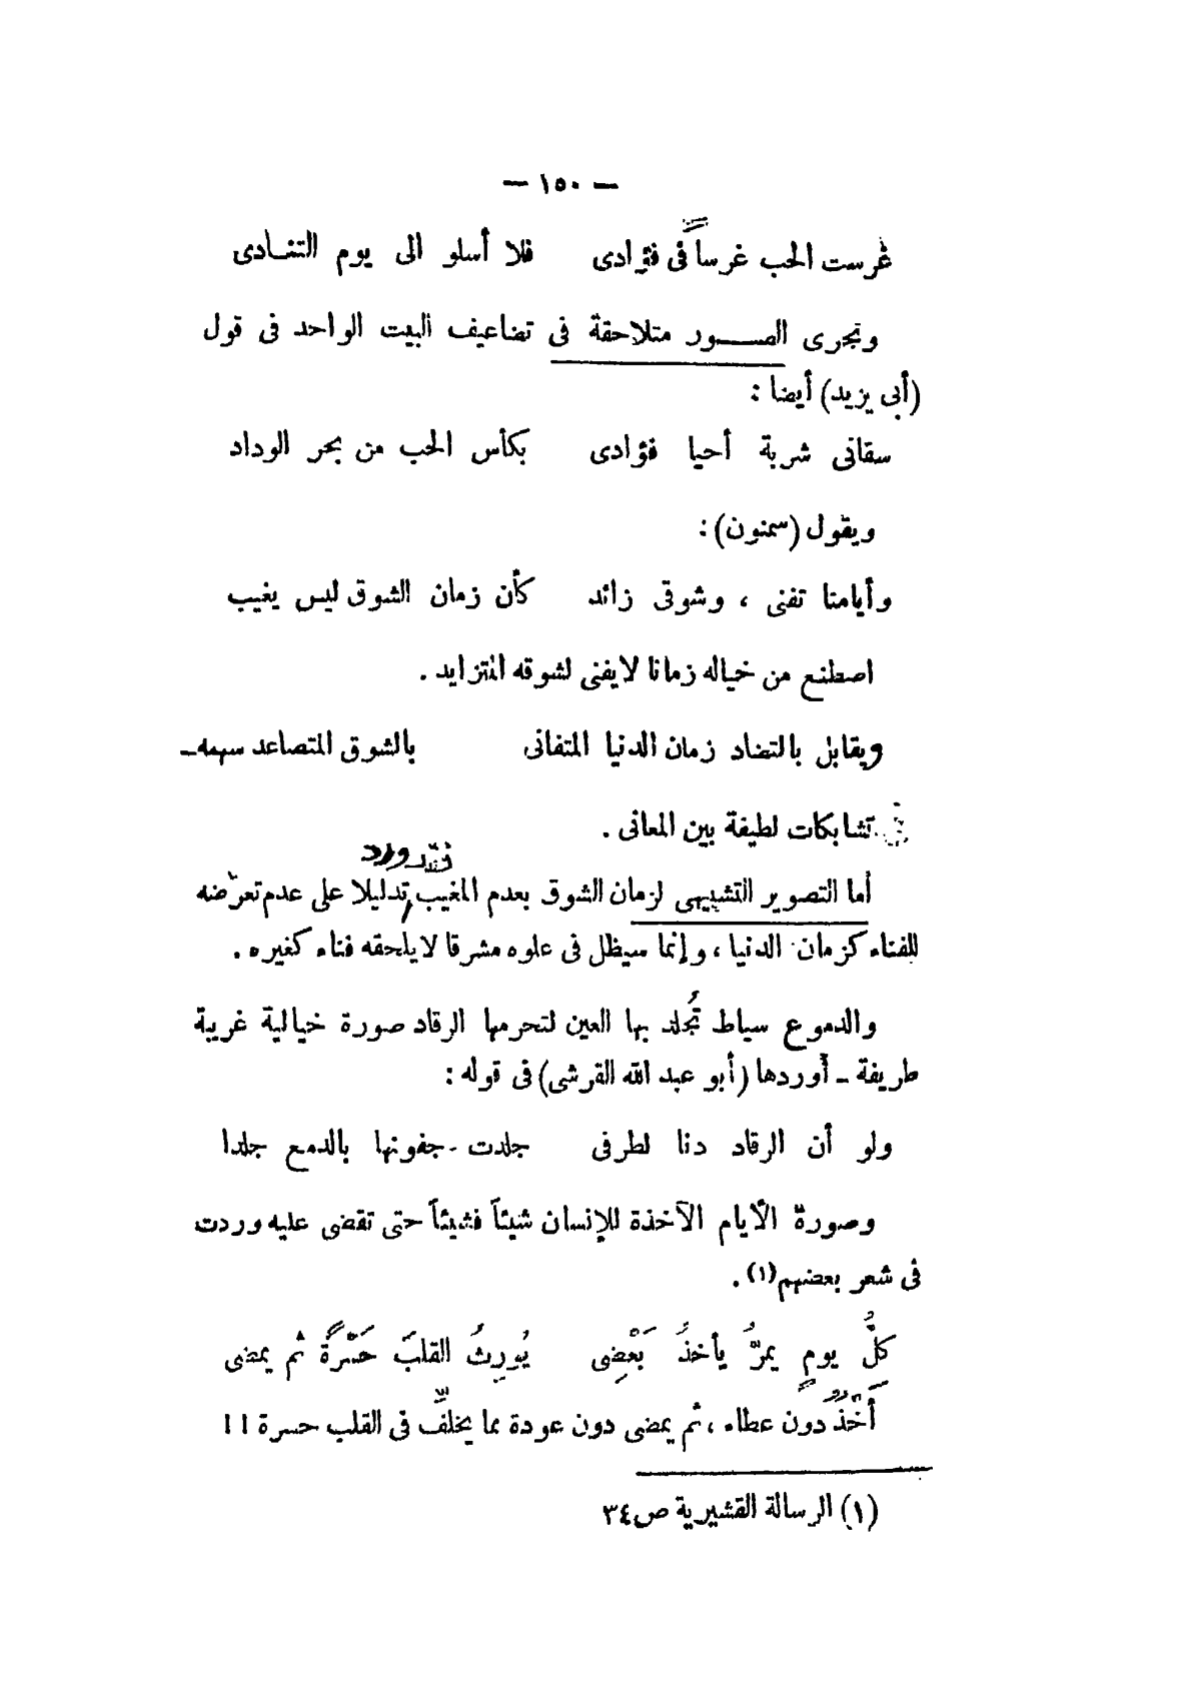 — ١٥٠ —
غرست الحب غرساً فى فؤادى فلا أسلو الى يوم التنادى
وتجرى الصور متلاحقة فى تضاعيف البيت الواحد فى قول
(أبى يزيد) أيضا :
سقانى شربة أحيا فؤادى بكأس الحب من بحر الوداد
ويقول (سمنون) :
وأيامنا تفنى ، وشوقى زائد كأن زمان الشوق ليس يغيب
اصطنع من خياله زمانا لا يفنى لشوقه المتزايد .
ويقابل بالتضاد زمان الدنيا المتفانى بالشوق المتصاعد سهمه ـ
فى تشابكات لطيفة بين المعانى .
فقد ورد
أما التصوير التشبيهى لزمان الشوق بعدم المغيب تدليلا على عدم تعرّضه
للفناء كزمان الدنيا ، وإنما سيظل فى علوه مشرقا لا يلحقه فناء كغيره .
والدموع سياط تُجلد بها العين لتحرمها الرقاد صورة خيالية غريبة
طريفة ـ أوردها (أبو عبد الله القرشى) فى قوله :
ولو أن الرقاد دنا لطرفى جلدت جفونها بالدمع جلدا
وصورة الأيام الآخذة للإنسان شيئاً فشيئاً حتى تقضى عليه وردت
فى شعر بعضهم(١) .
كلُّ يومٍ يمرُّ يأخذُ بَعْضِى يُورِثُ القلبَ حَسْرَةً ثم يمضى
أَخْذٌ دون عطاء ، ثم يمضى دون عودة مما يخلفِّ فى القلب حسرة !!
(١) الرسالة القشيرية ص ٣٤